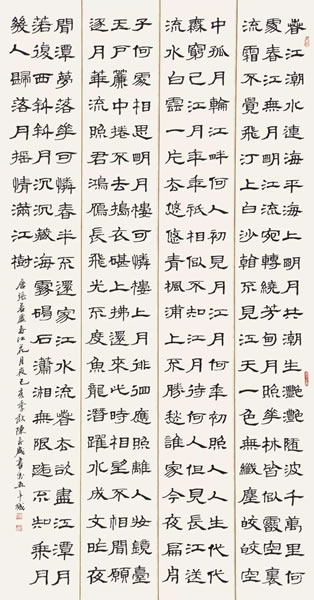 春江潮水連海平海上明月共潮生灧灧隨波千萬里何
處春江無月明江流宛轉繞芳甸月照華林皆似霰空裏
流霜不覺飛汀上白沙看不見江天一色無纖塵皎皎空
中孤月輪江畔何人初見月江月何年初照人人生代代
無窮已江月年年祇相似不知江月待何人但見長江送
流水白雲一片去悠悠青楓浦上不勝愁誰家今夜扁舟
子何處相思明月樓可憐樓上月徘徊應照離人妝鏡臺
玉戶簾中捲不去搗衣碪上拂還來此時相望不相聞願
逐月華流照君鴻雁長飛光不度魚龍潛躍水成文昨夜
閒潭夢落華可憐春半不還家江水流春去欲盡江潭
落復西斜斜月沉沉藏海霧碣石瀟湘無限路不知乘月
幾人歸落月搖情滿江樹
唐張若虛春江花月夜己亥季秋陳